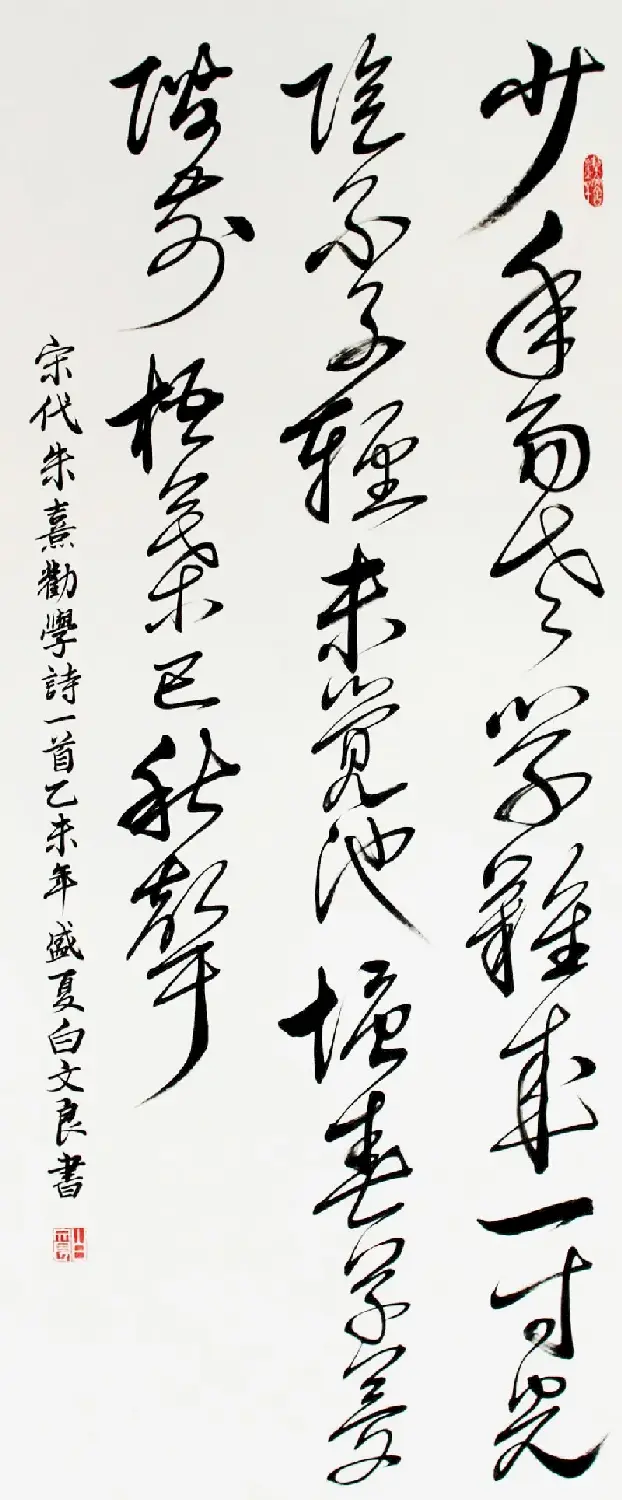 少年易老学難成一寸光
陰不可輕未覺池塘春草夢
階前梧葉已秋聲
宋代朱熹勸學詩一首乙未年盛夏白文良書